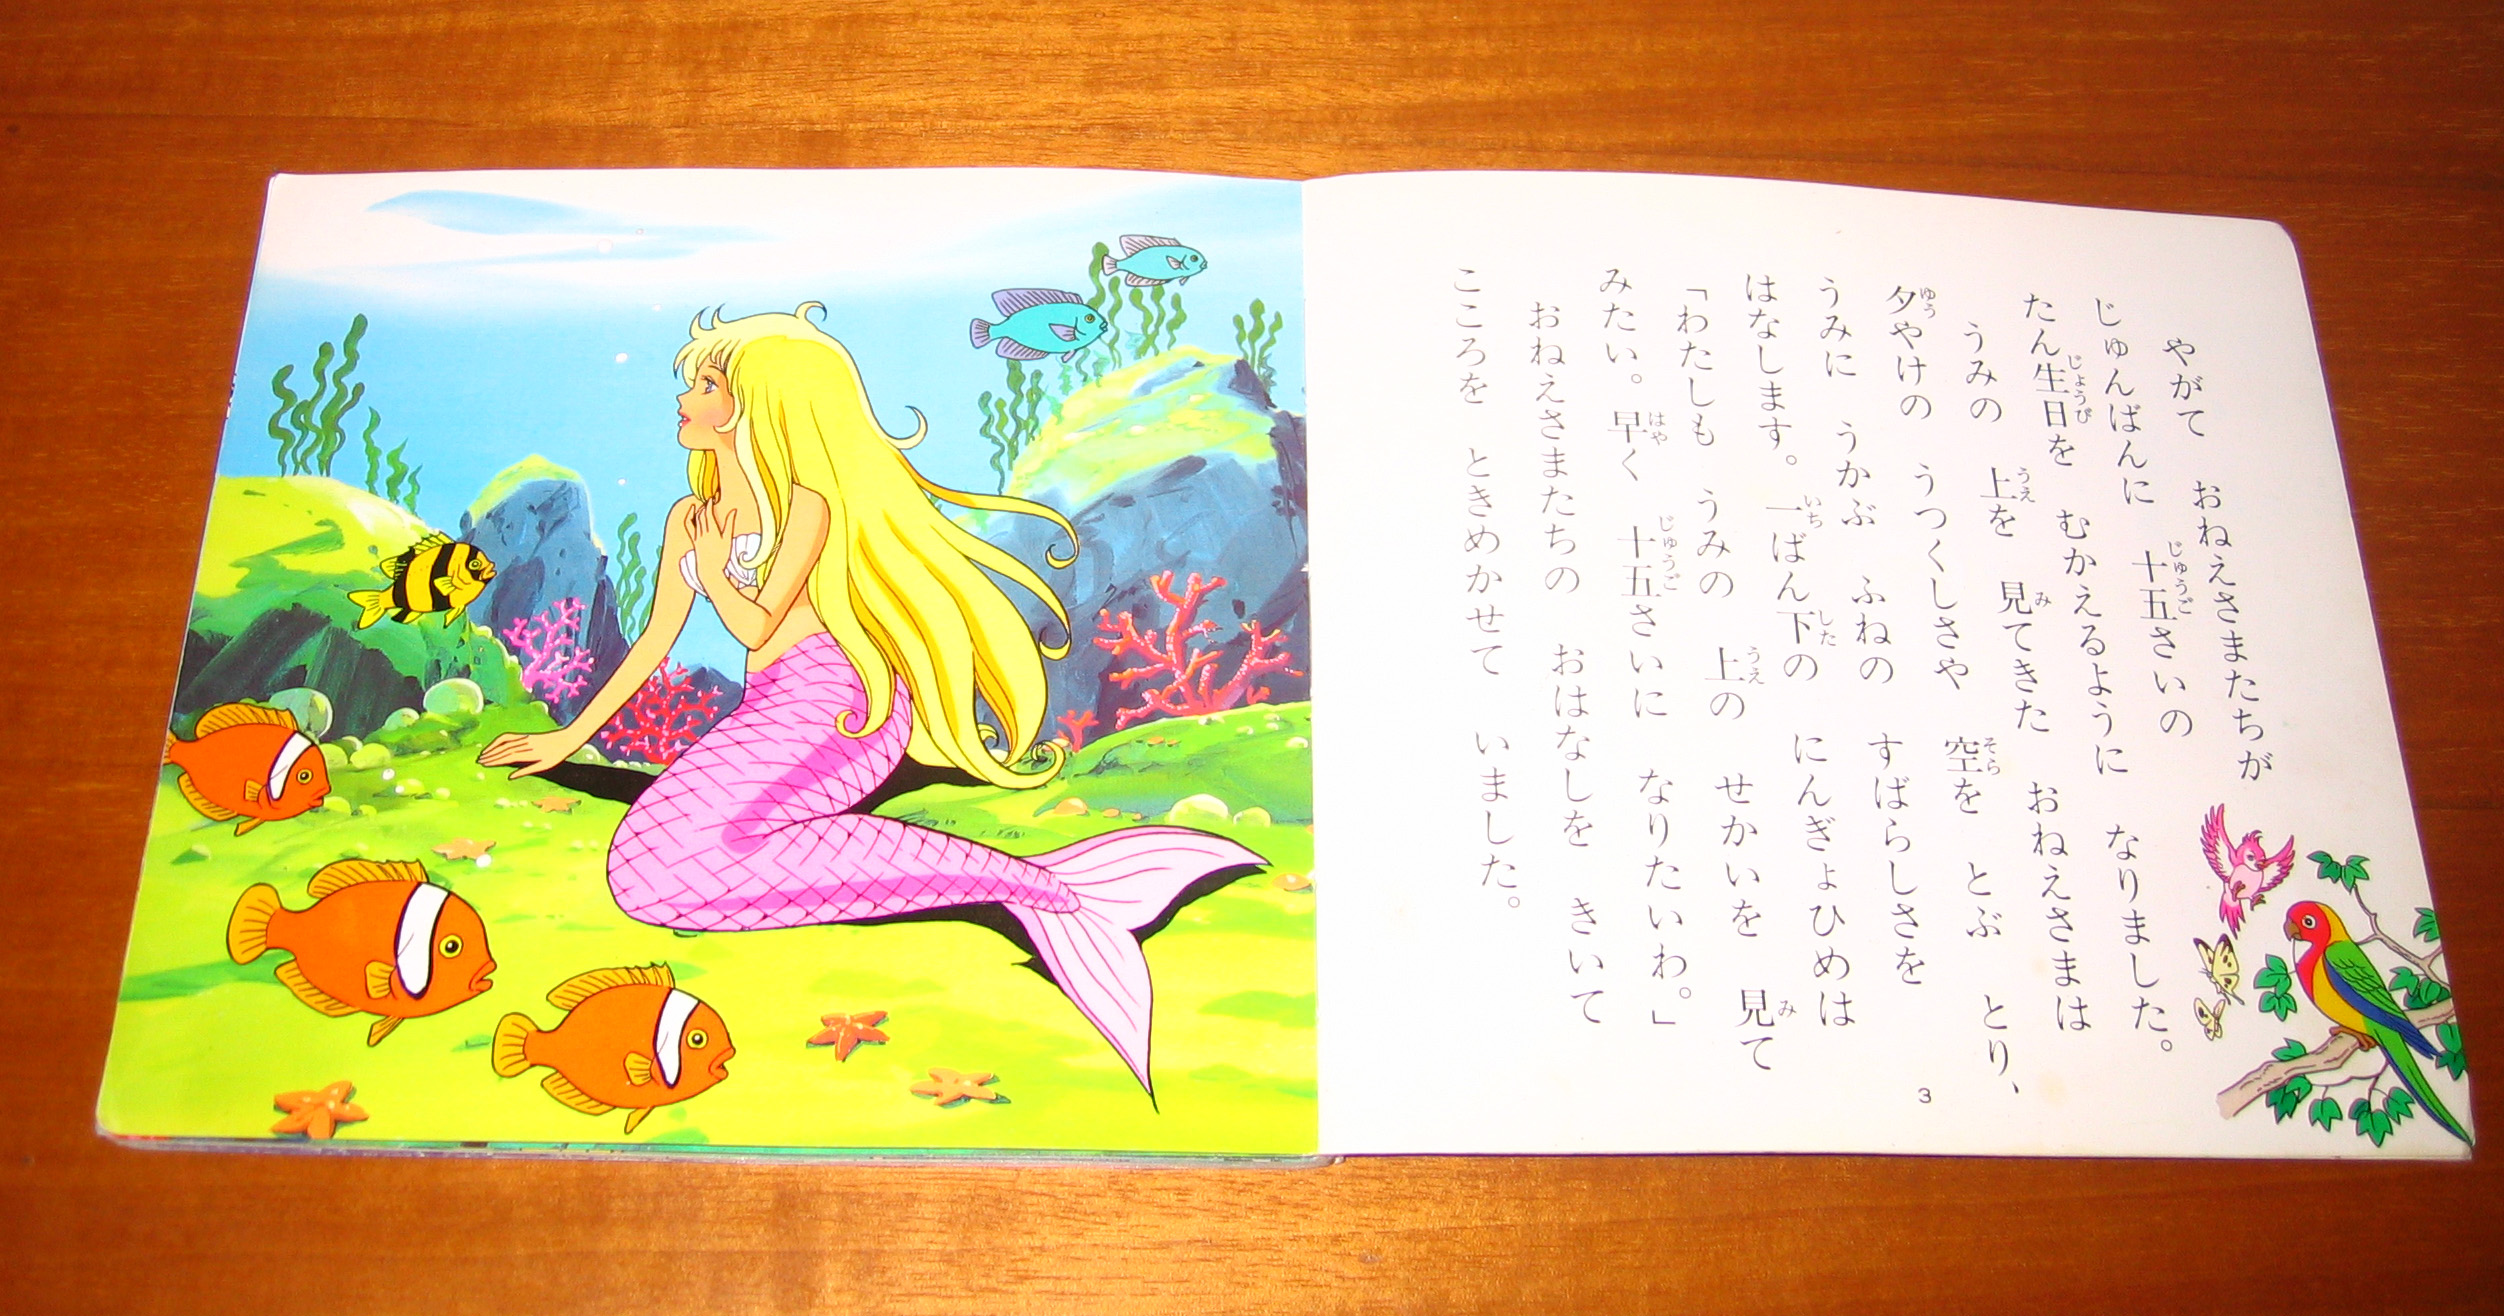 やがて おねえさまたちが
じゅんばんに 十五さいの なりました。
たん生日を むかえるように おねえさまは
うみの 上を 見てきた 空を とぶ とり、
夕やけの うつくしさや すばらしさを
うみに うかぶ ふねの にんぎょひめは
はなします。 一ばん下の せかいを 見て
「わたしも うみの 上の なりたいわ。」
みたい。 早く 十五さいに きいて
おねえさまたちの おはなしを
こころを ときめかせて いました。
3